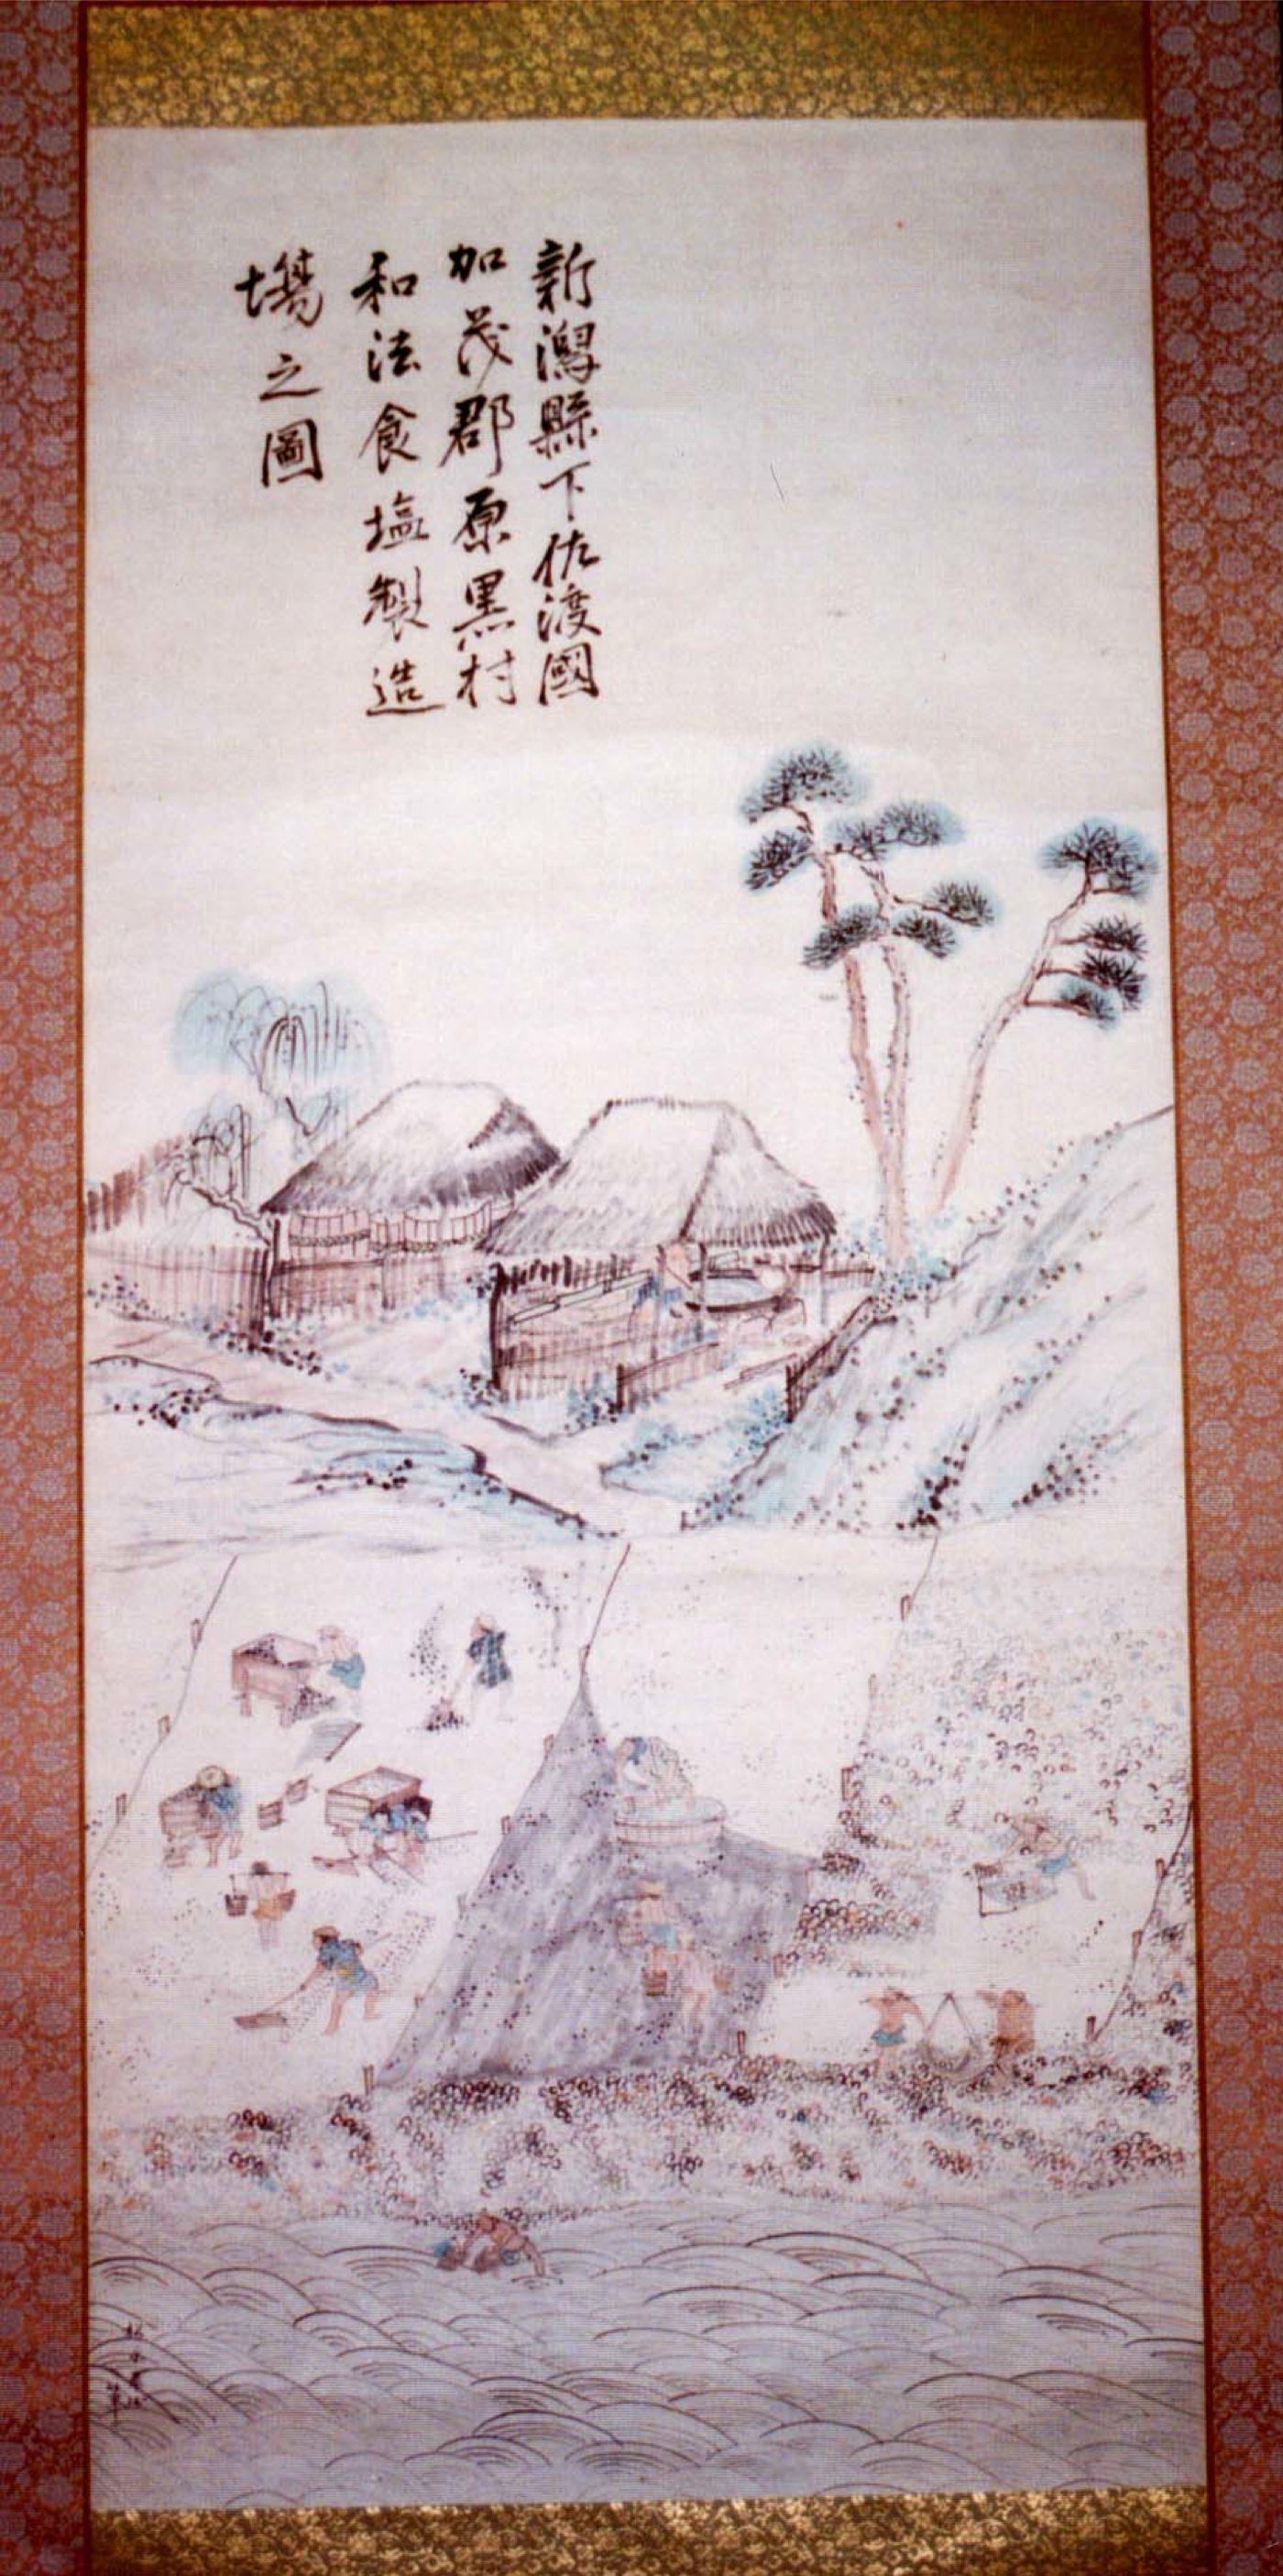 新潟縣下佐渡國
加茂郡原黒村
和法食塩製造
場之圖
筆